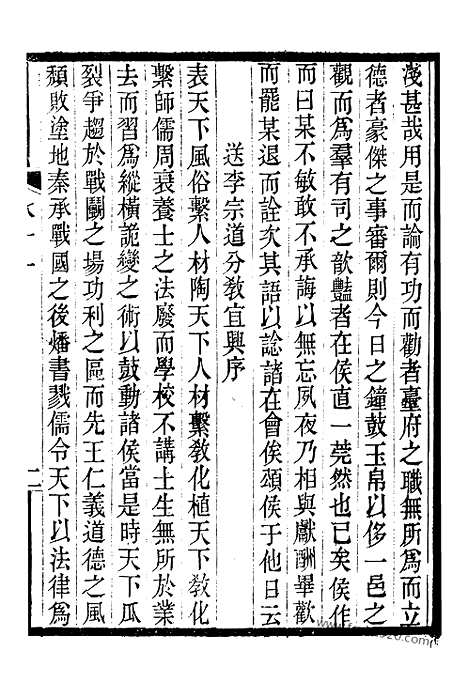 淺甚哉用是而論有功而勸者臺府之職無所爲而立
德者豪傑之事審爾則今日之鐘鼓玉帛以侈一邑之
觀而爲羣有司之歆豔者在侯直一莞然也已矣侯作
而曰某不敏敢不承誨以無忘夙夜乃相與獻酬畢歡
而罷某退而詮次其語以諗諸在會俟頌侯于他日云
送李宗道分敎宜興序
表天下風俗繫人材陶天下人材繫敎化植天下敎化
繫師儒周衰養士之法廢而學校不講士生無所於業
去而習爲縱橫詭變之術以鼓動諸侯當是時天下瓜
裂爭趨於戰鬭之場功利之區而先王仁義道德之風
頹敗塗地秦承戰國之後燔書戮儒令天下以法律爲
卷十一
二